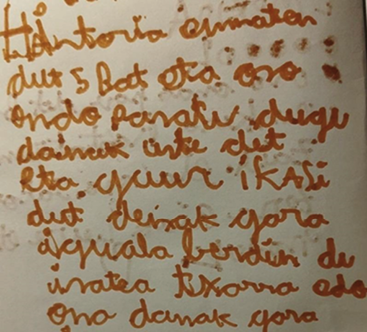 Hantoria ematen
dut 5 Bat eta oso
ondo pasatu dugu
dainak uste dut
eta gaur iKASi
dut denak gara
iguala berdin du
izatea txarra edo
ona danak gara